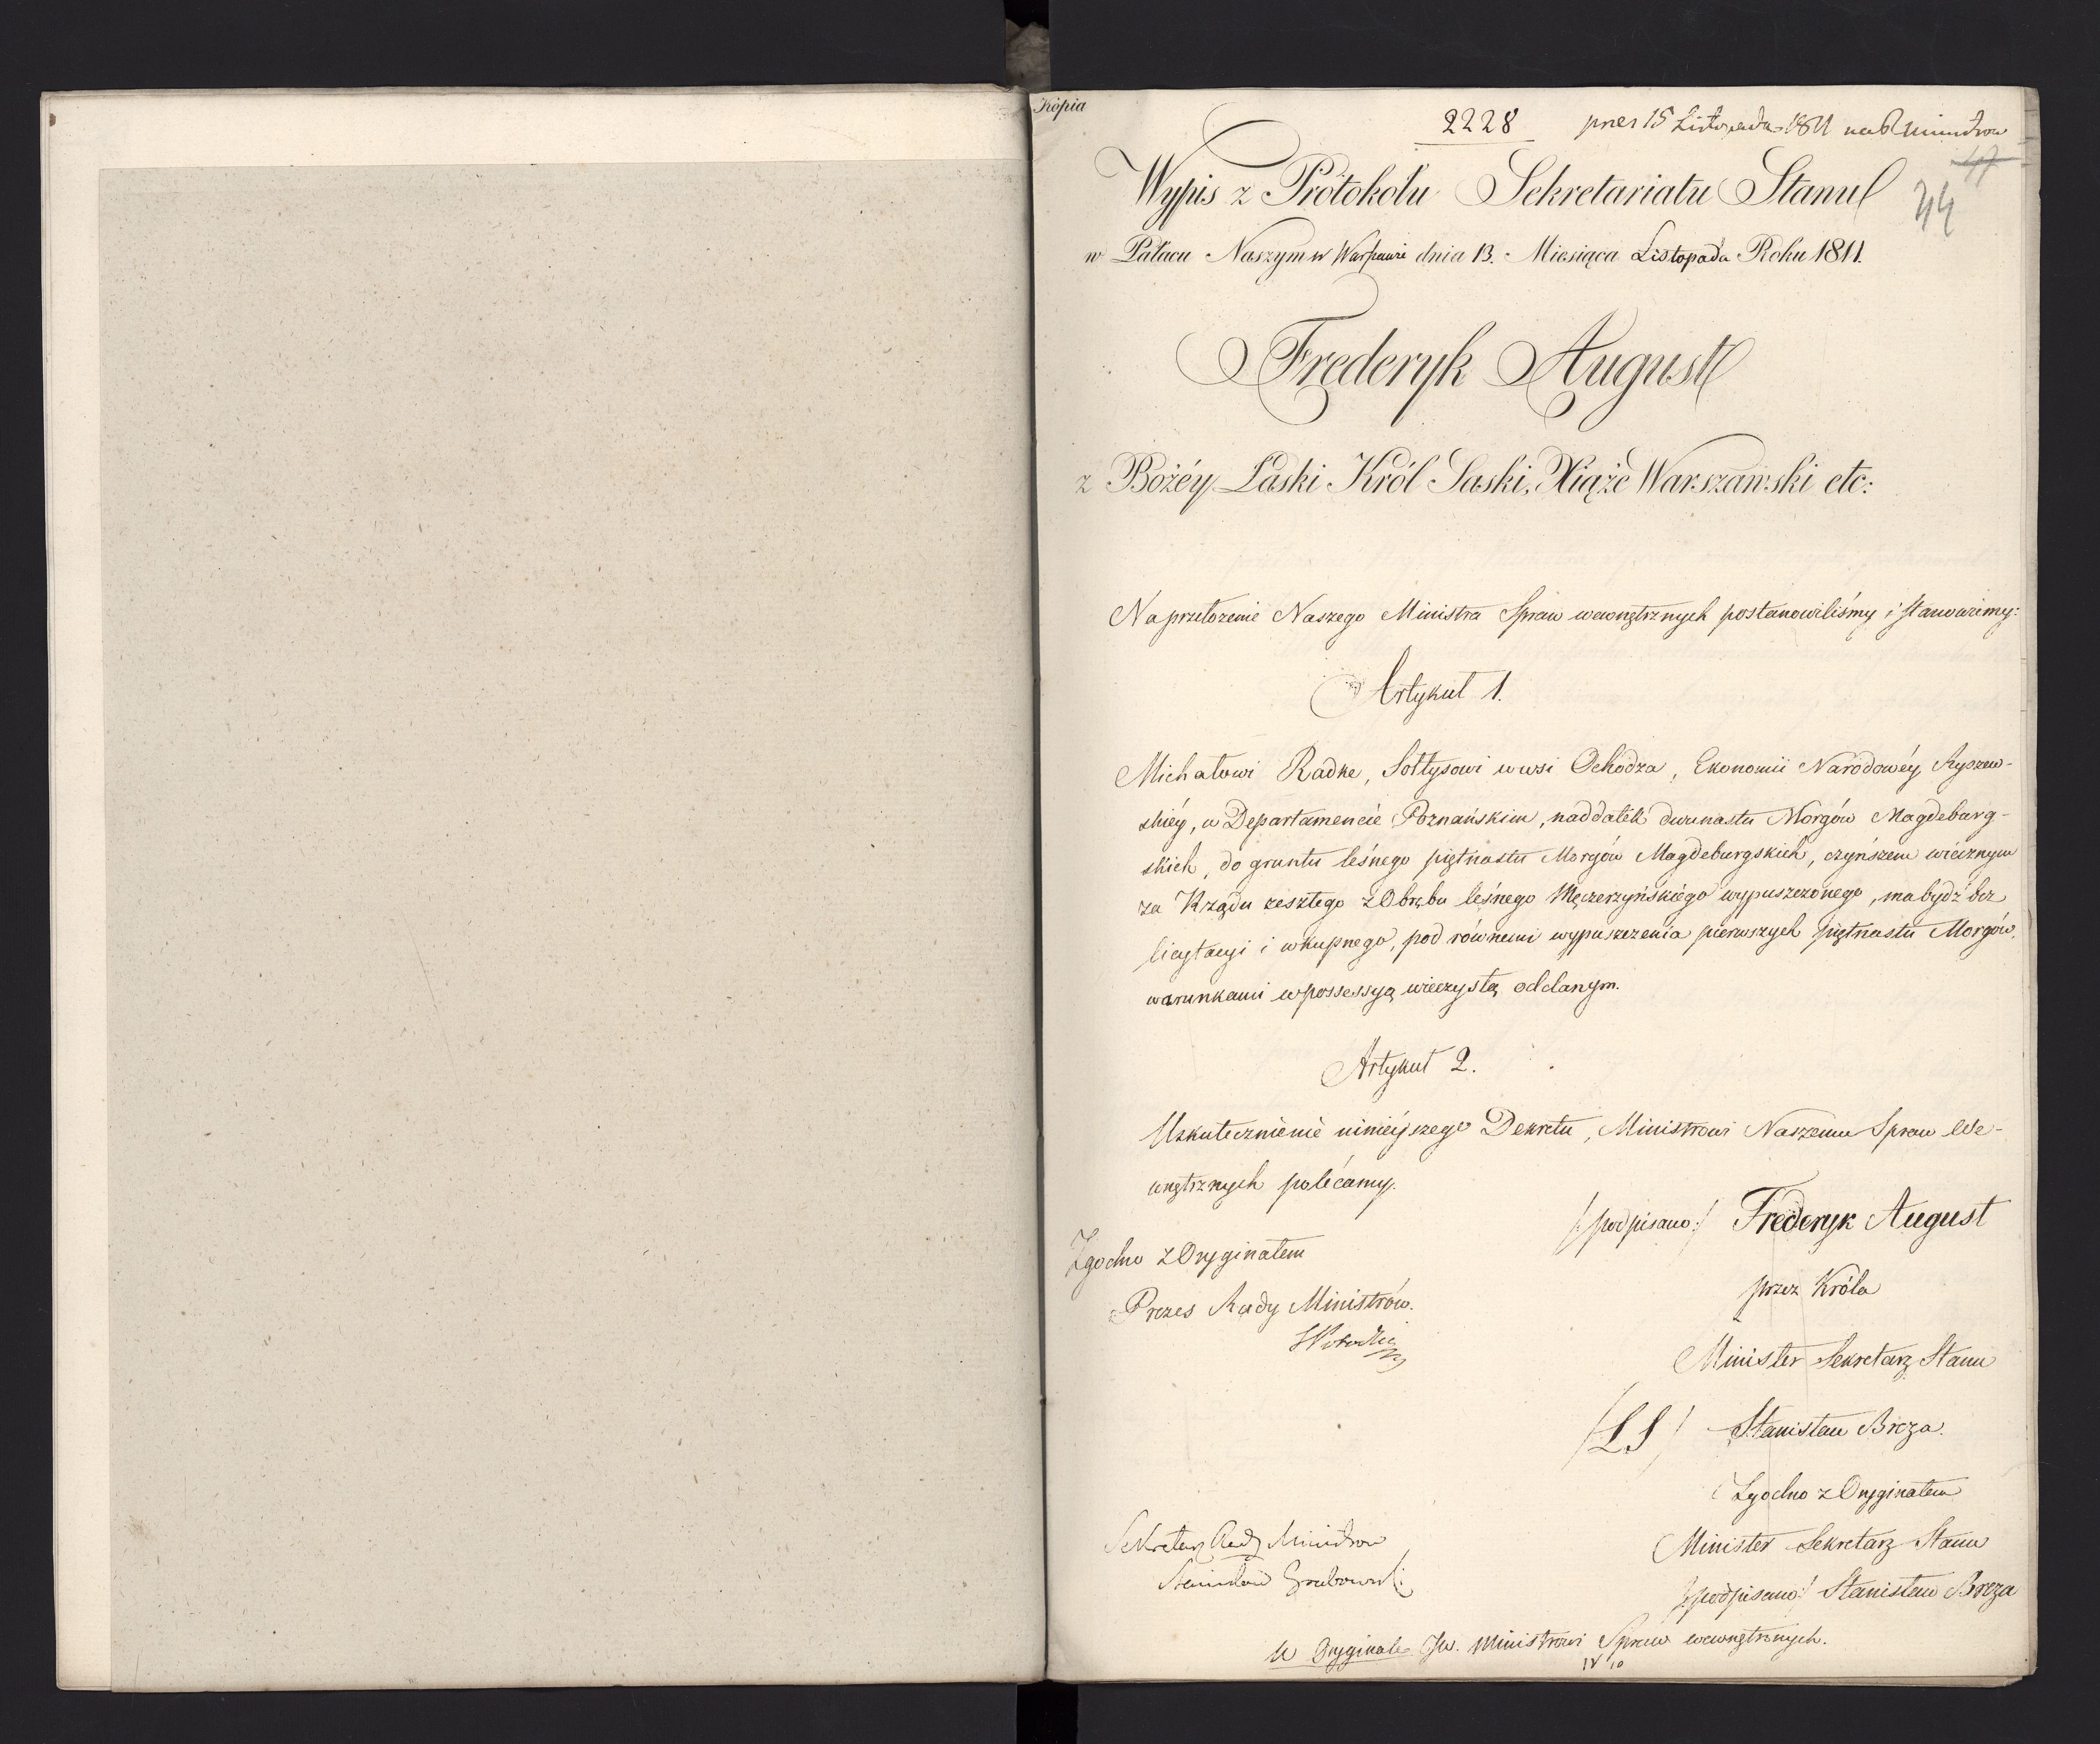 Kópia
2228 pres 15 Listopada 1811 na R Ministrow
47
44
Wypis z Protokołu Sekretariatu Stanu
w Pałacu Naszym w Warszawie dnia 13. Miesiąca Listopada Roku 1811.
Frederyk August
z Bożéy Łaski Król Saski, Xiąże Warszawski etc:
Na przełożenie Naszego Ministra Spraw wewnętrznych postanowiliśmy i stanowimy:
Artykuł 1.
Michałowi Radke, Sołtysowi w wsi Ochodza, Ekonomii Narodowéy Ryszew-
skiéy, w Departamencie Poznańskim, naddatek dwunastu Morgów Magdeburg-
skich, do gruntu leśnego piętnastu Morgów Magdeburgskich, czynszem wiecznym
za Rządu zeszłego z Obrębu leśnego Męczerzyńskiego wypuszczonego, ma bydź bez
licytacyi i wkupnego, pod równemi wypuszczenia pierwszych piętnastu Morgów,
warunkami w possessyą wieczystą oddanym.
Artykuł 2.
Uskutecznienie ninieyszego Dekretu, Ministrowi Naszemu Spraw We-
wnętrznych polécamy.
/:podpisano:/ Frederyk August
Zgodno z Oryginałem
przez Króla
Prezes Rady Ministrów.
Minister Sekretarz Stanu
/LS/ Stanisław Breza.
Zgodno z Oryginałem
Sekretarz Rady Ministrow
Minister Sekretarz Stanu
Stanisław Grabowski
/:podpisano:/ Stanisław Breza
W Oryginale JW. Ministrowi Spraw wewnętrznych.